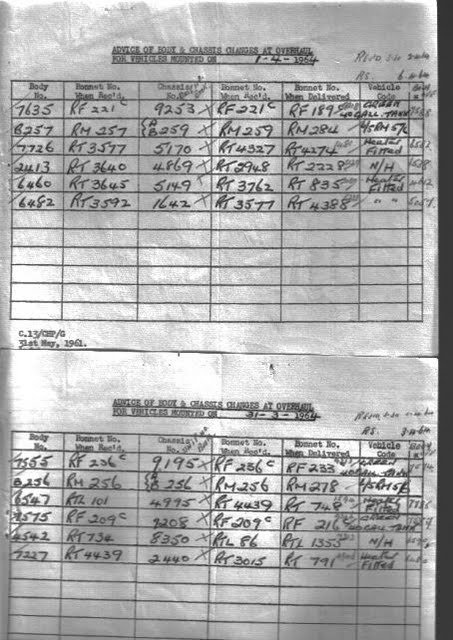 ADVICE OF BODY & CHASSIS CHANGES AT OVERHAUL
FOR VEHICLES MOUNTED ON 1-4-1964
Body No. Bonnet No. When Rec'd. Chassis No. Bonnet No. When Delivered Vehicle Code
7635 RF 221c 9253 RF 221c RF 189 GREEN 40 GALL TANK
B257 RM 257 A B 259 RM 259 RM 284
7726 RT 3577 5170 RT 4327 RT 4274 Heater Fitted
2413 RT 3640 4869 RT 2948 RT 2228 N/H
6460 RT 3645 5149 RT 3762 RT 835 Heater Fitted
6482 RT 3592 1642 RT 3577 RT 4388 " "
C.13/CHP/G
31st May, 1961.
ADVICE OF BODY & CHASSIS CHANGES AT OVERHAUL
FOR VEHICLES MOUNTED ON 31-3-1964
Body No. Bonnet No. When Rec'd. Chassis No. Bonnet No. Bonnet No. When Delivered Vehicle Code
7555 RF 236c 9195 RF 236c RF 233 GREEN 40 GALL TANK
B256 RM 256 A B 256 RM 256 RM 278
RTL 101 4995 RT 4439 RT 748 Heater Fitted
RF 209c 9208 RF 209c RF 216 40 GALL TANK
4542 RT 734 8350 RTL 86 RTL 1355 N/H
7227 RT 4439 2440 RT 3015 RT 791 Heater Fitted